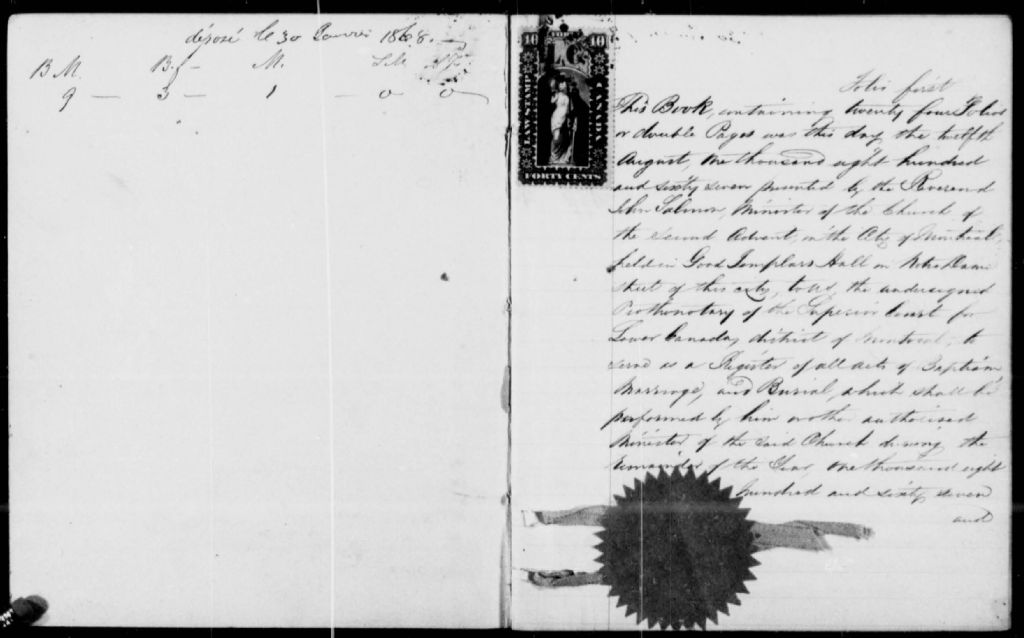 déposé le 30 Janvier 1868.
B M. B f — M. S.M.
9 — 3 — 1 — 0 0
40 40
LAW STAMP
CENTS
FORTY CENTS
Folio first
This Book, containing twenty four Folios
or double Pages was this day, the twelfth
August, One thousand eight hundred
and sixty seven presented by the Reverend
John Salmon, Minister of the Church of
the Second Advent, in the City of Montreal,
held in Good Templars Hall on Notre Dame
street of this city, to us, the undersigned
Prothonotary of the Superior Court for
Lower Canada, district of Montreal, to
serve as a Register of all acts of Baptism
Marriage, and Burial, which shall be
performed by him or other authorised
Minister of the said Church during the
remainder of the Year, One thousand eight
hundred and sixty seven
and